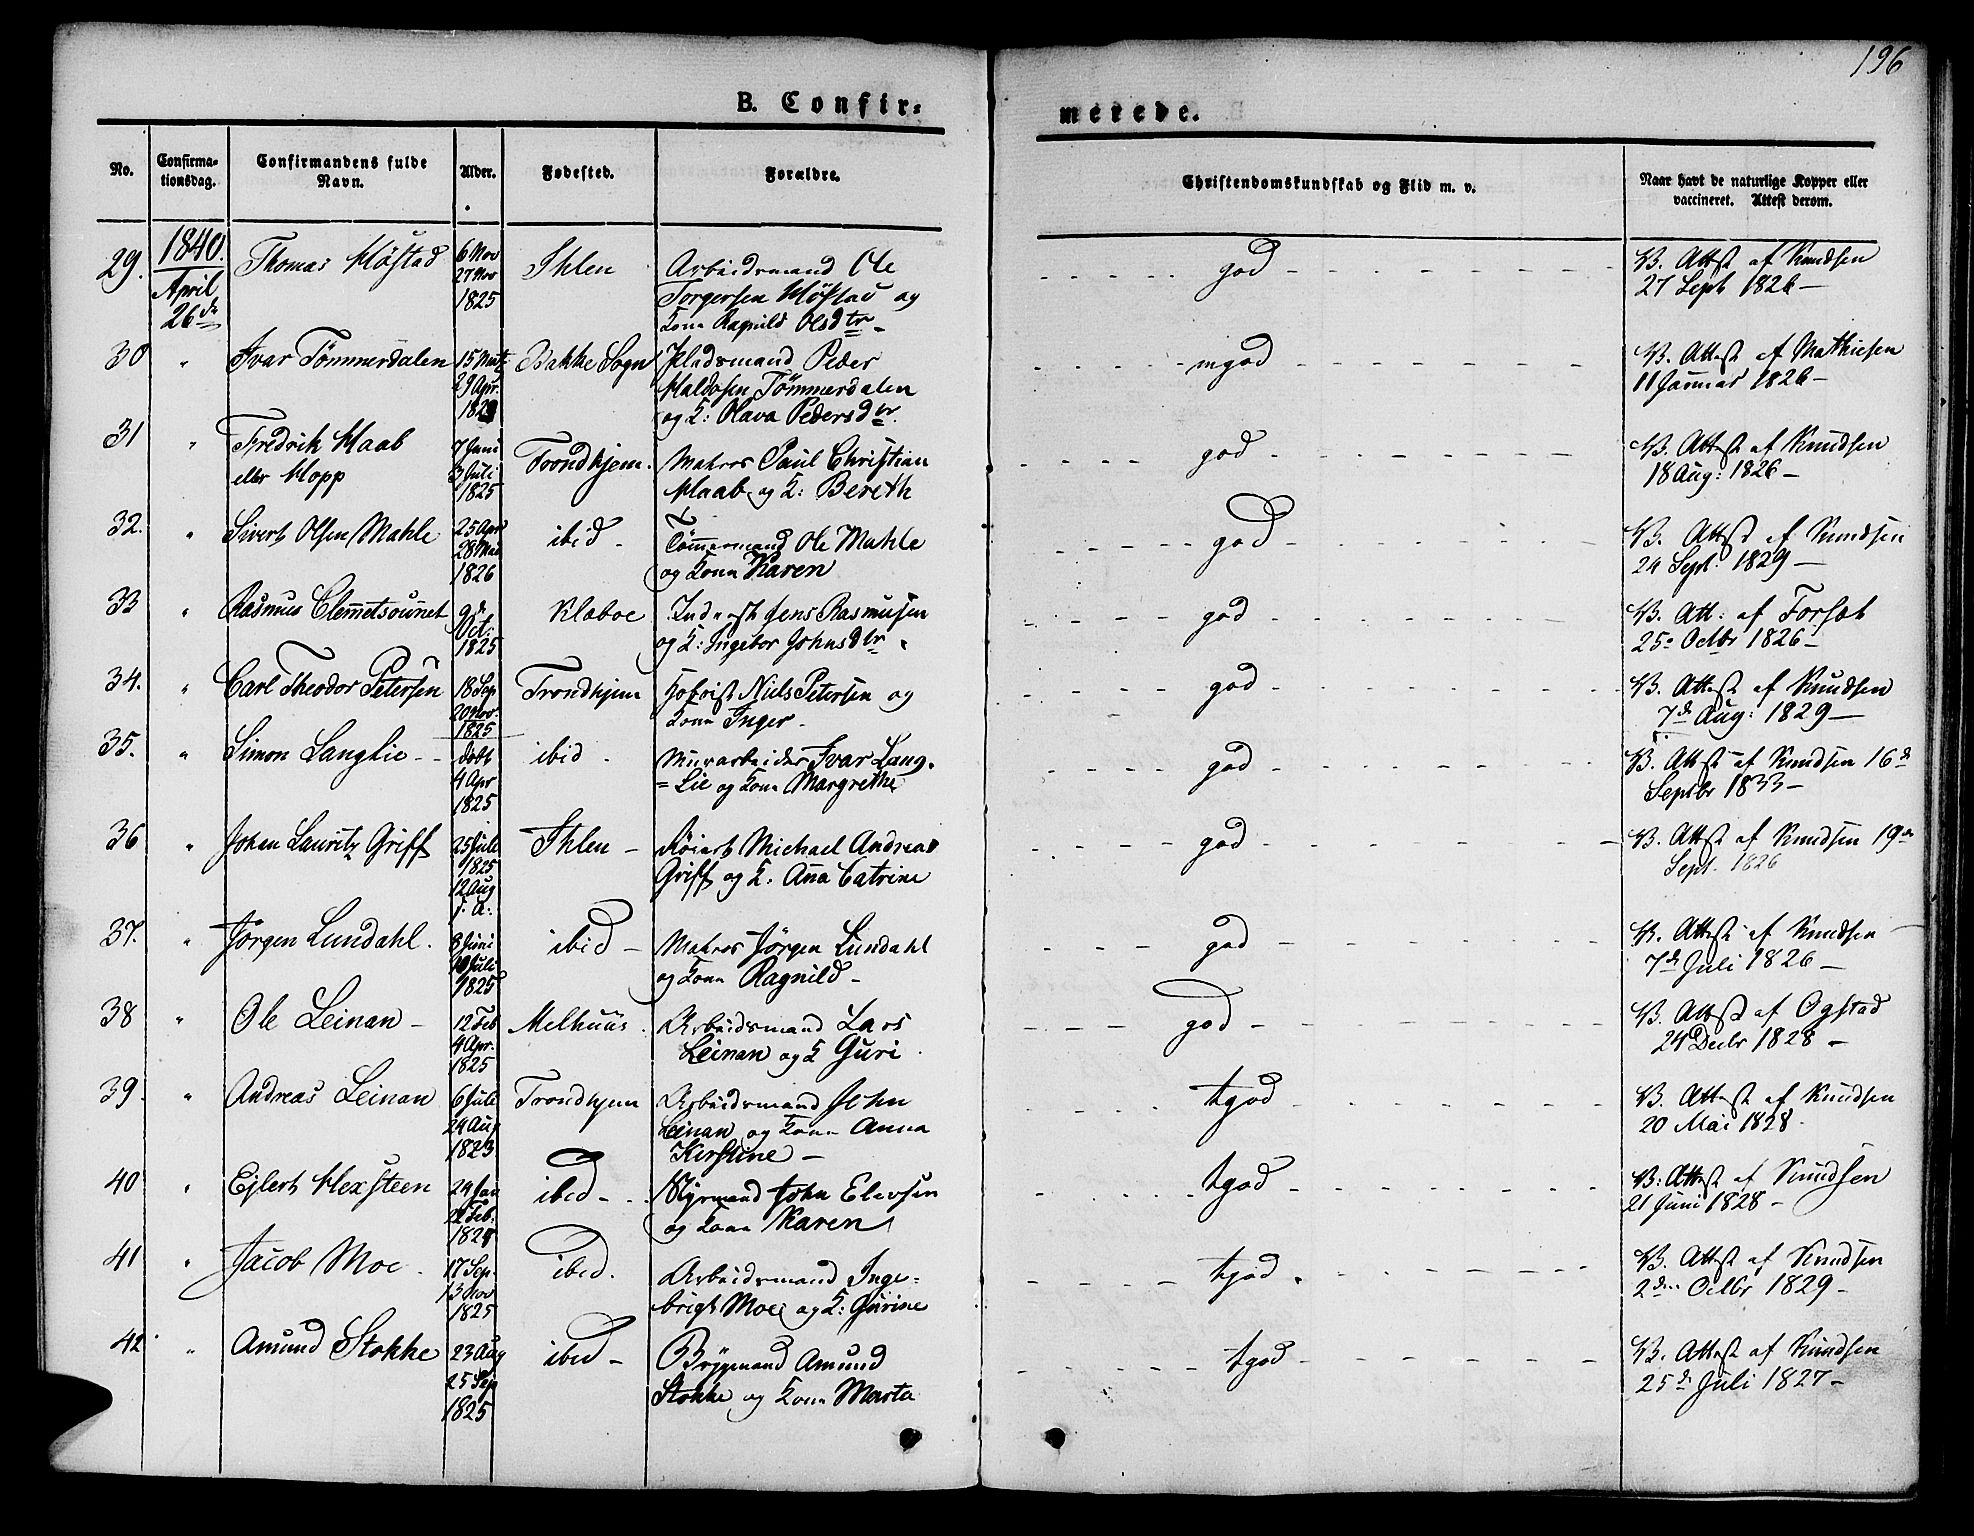 196
B. Confir=
merede.
No.
Confirma-
tionsdag.
Confirmandens fulde
Navn.
Alder.
Fødested.
Forældre.
Christendomskundskab og Flid m. v.
Naar havt de naturlige Kopper eller
vaccineret. Attest derom.
29. 1840. April 26de Thomas Høstad 6 Nov 27 Nov 1825 Ihlen Arbeidsmand Ole
Torgersen Høstad og
Kone Ragnild Olsdtr
god
V. Attest af Knudsen
27 Sept 1826
30 " Ivar Tømmerdalen 15 Mrtz 29 Apr. Bakke Sogn Pladsmand Peder
Haldosen Tømmerdalen
og K: Olava Pedersdtr.
mgod
V. Attest af Mathiesen
11 Januar 1826
31 " Fredrik Haab
eller Hopp
7 Juni 3 Juli 1825 Trondhjem. Matros Paul Christian
Haab og K: Bereth
god
V. Attest af Knudsen
18 Aug: 1826
32. " Sivert Olsen Mahle 25 Apr 28 Mai 1826 ibid Tømmermand Ole Mahle
og Kone Karen
god
V. Attest af Knudsen
24 Sept. 1829
33 " Rasmus Clemetsounet 9de Oct. 1825 Klæboe Inderst Jens Rasmusen
og K: Ingebor Johnsdtr
god
V. Att: af Forsæt
25de Octbr 1826
34. " Carl Theodor Petersen 18 Sep 20 Nov. 1825 Trondhjem Niels Petersen og
Kone Inger
god
V. Attest af Knudsen
7de Aug: 1829
35. " Simon Langlie døbt 4 Apr 1825 ibid Murarbeider Ivar Lang-
=Lie og Kone Margrethe
god
V. Attest af Knudsen 16de
Septbr 1833
36 " Johan Lauritz Griff 25 Juli 1825 12 Aug s. A. Ihlen Michael Andreas
Griff og K: Ana Catrine
god
V. Attest af Knudsen 19de
Sept. 1826
37. " Jørgen Lundahl. 8 Juni 10 Juli 1825 ibid Matros Jørgen Lundahl
og Kone Ragnild
god
V. Attest af Knudsen
7de Juli 1826
38 " Ole Leinan 12 Feb 4 Apr. 1825 Melhuus Arbeidsmand Lars
Leinan og K Guri
god
V. Attest af Ogstad
24 Decbr 1828
39. " Andreas Leinan 6 Juli 24 Aug 1823 Trondhjem Arbeidsmand John
Leinan og Kone Anna
Kirstine
tgod
V. Attest af Knudsen
20 Mai 1828.
40 " Ejlert Hexsteen 24 Jan Feb. ibid Styrmand John Elevsen
og Kone Karen
tgod
V: Attest af Knudsen
21 Juni 1828
41 " Jacob Moe 17 Sep. 13 Nov 1825 ibid. Arbeidsmand Inge=
brigt Moe og K: Gurine
tgod
V. Attest af Knudsen
2den Octbr 1829
42 " Amund Stokke 23 Aug 25 Sep 1825 ibid Brygmand Amund
Stokke og Kone Marta
tgod
V. Attest af Knudsen
25de Juli 1827